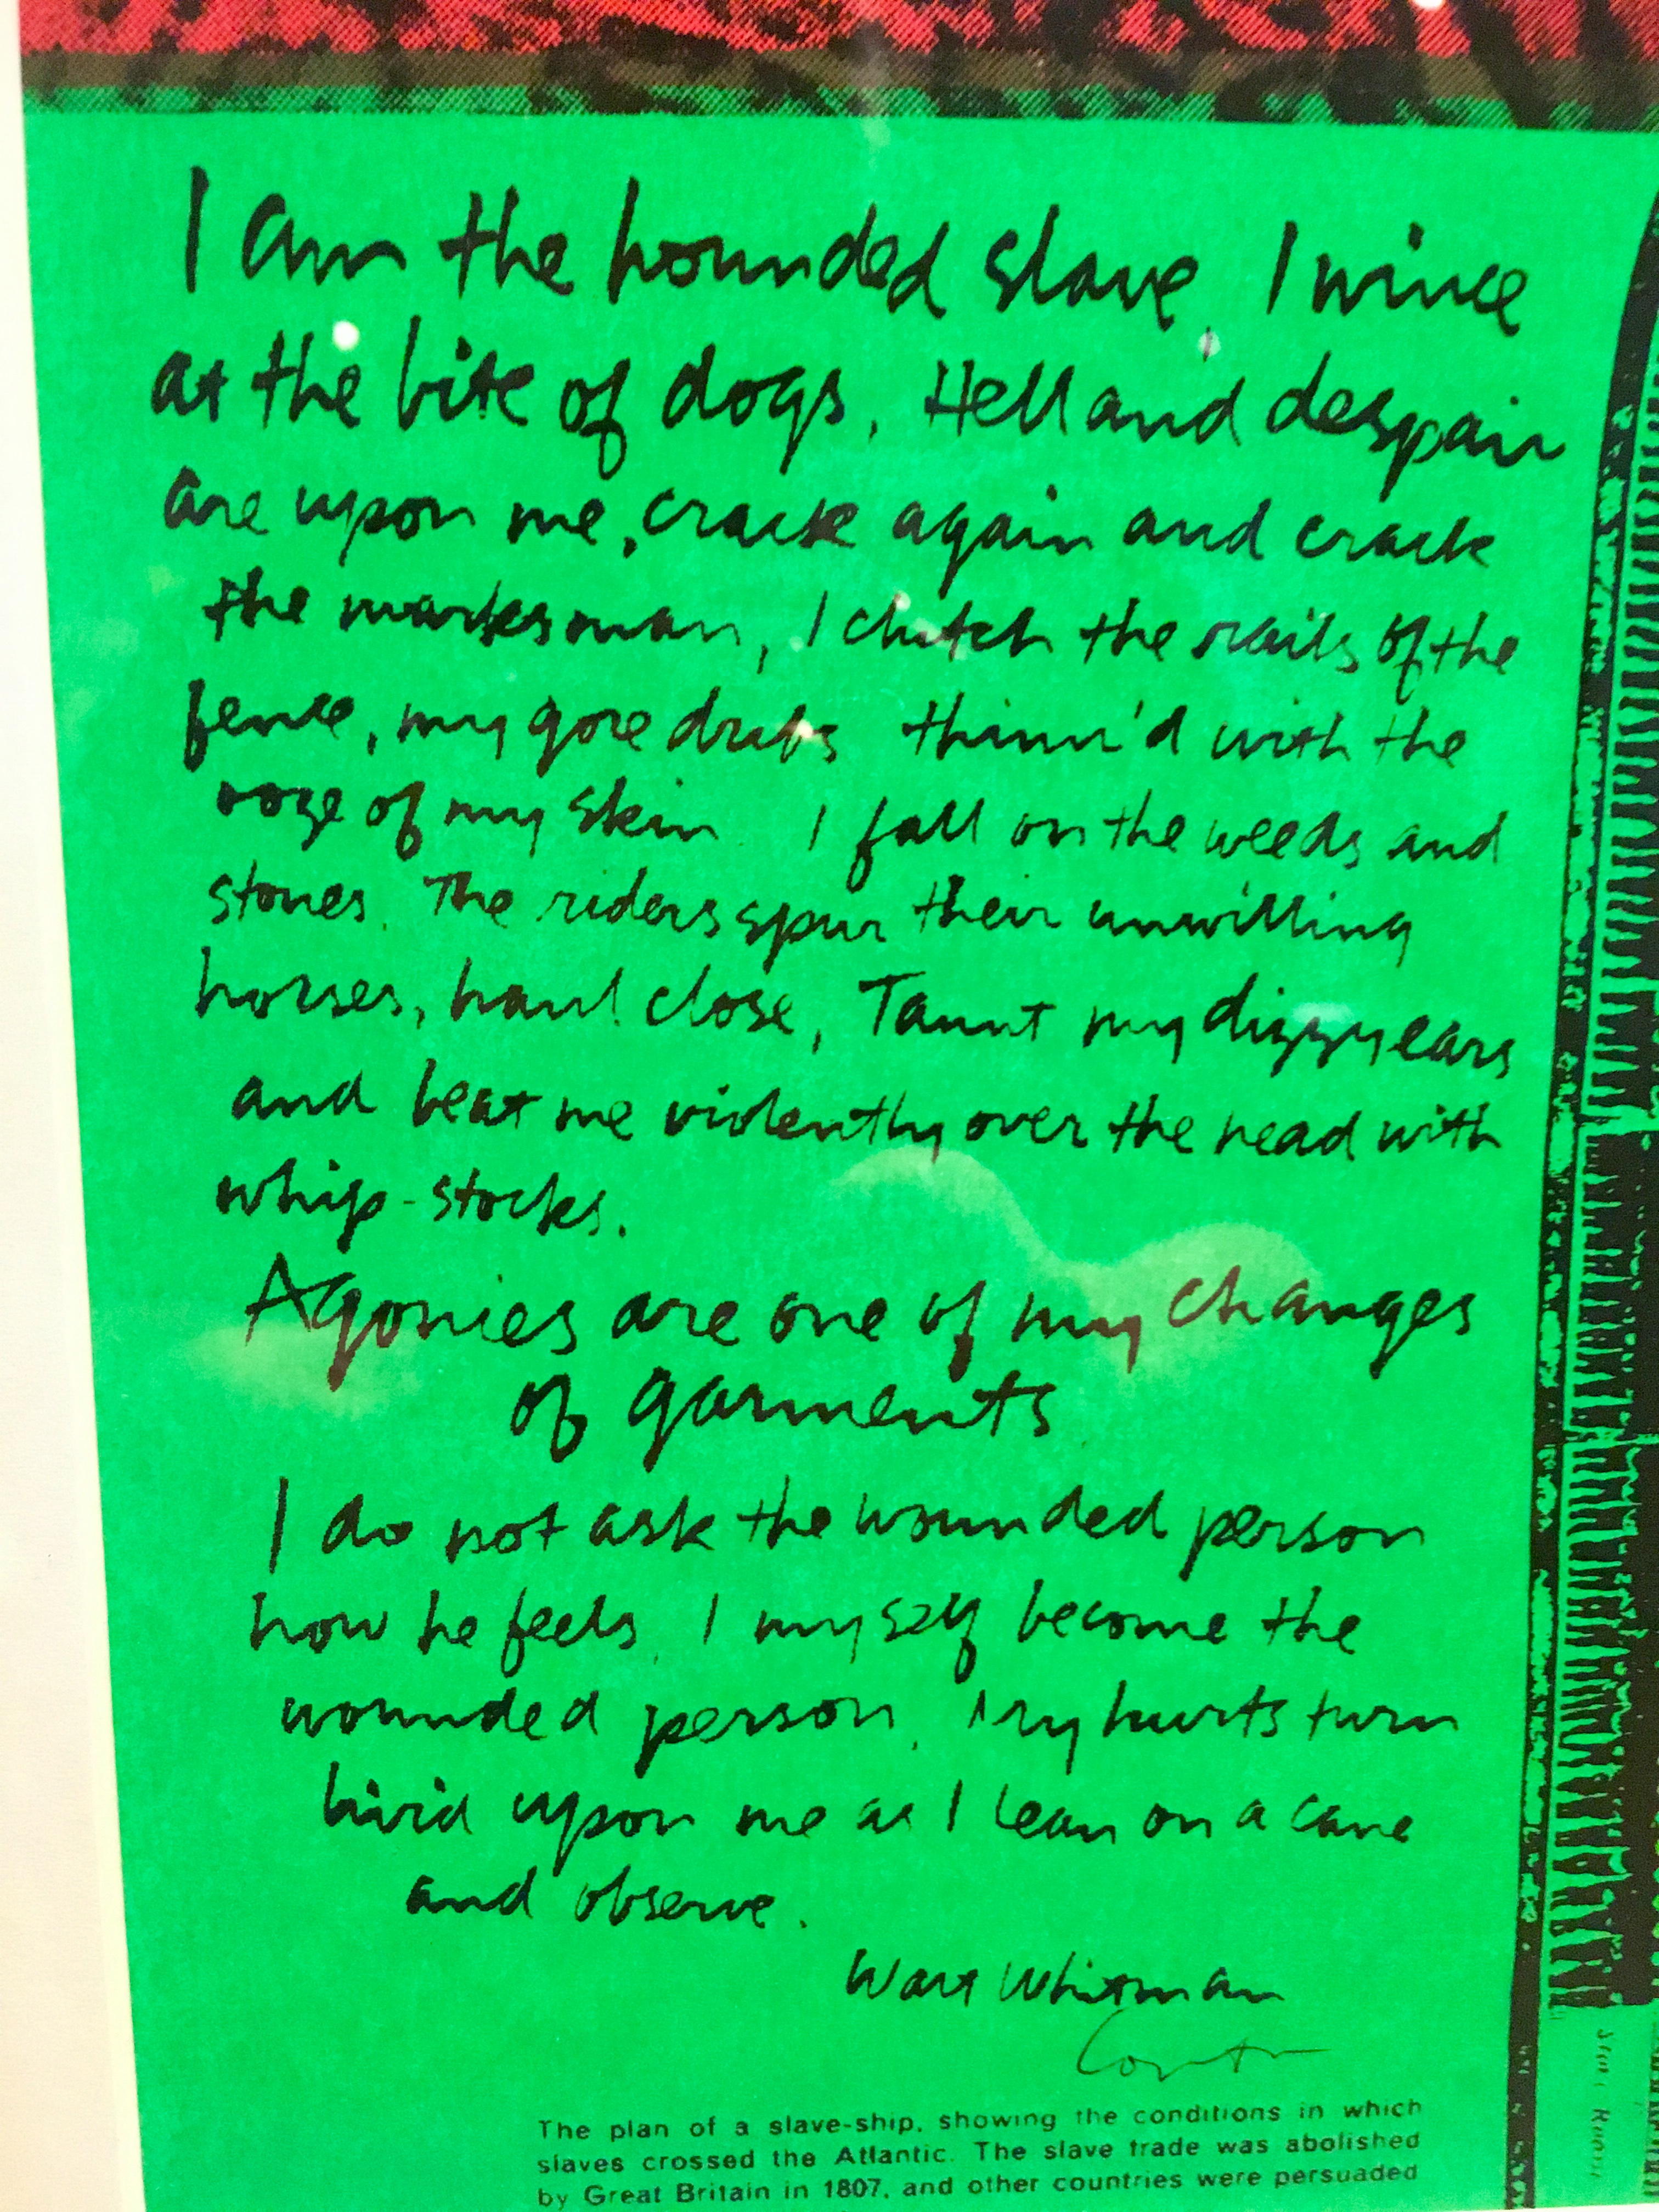 I am the hounded slave, I wince
at the bite of dogs, Hell and despair
are upon me, crack again and crack
the marksman, I clutch the rails of the
fence, my gore dribs thinn'd with the
ooze of my skin I fall on the weeds and
stones. The riders spur their unwilling
horses, haul close, Taunt my dizzy ears
and beat me violently over the head with
whip-stocks.
Agonies are one of my changes
of garments
I do not ask the wounded person
how he feels, I myself become the
wounded person, My hurts turn
livid upon me as I lean on a cane
and observe.
Walt Whitman
The plan of a slave-ship, showing the conditions in which
slaves crossed the Atlantic. The slave trade was abolished
by Great Britain in 1807, and other countries were persuaded